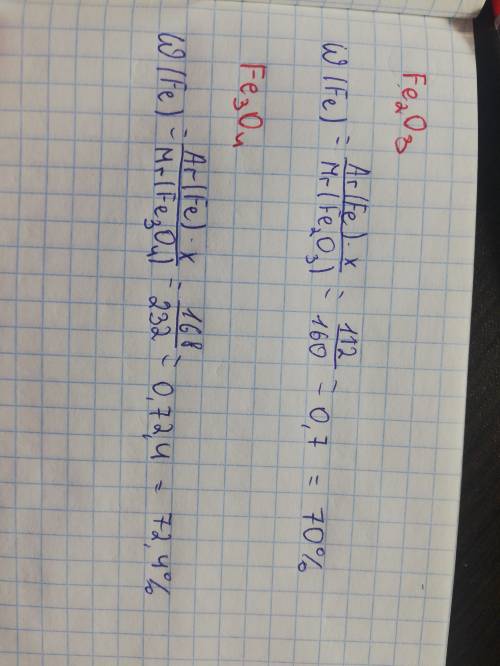 Fe₂O₃
W(Fe) = Ar(Fe)·x / Mr(Fe₂O₃) = 112 / 160 = 0,7 = 70%
Fe₃O₄
W(Fe) = Ar(Fe)·x / Mr(Fe₃O₄) = 168 / 232 = 0,72,4 = 72,4%